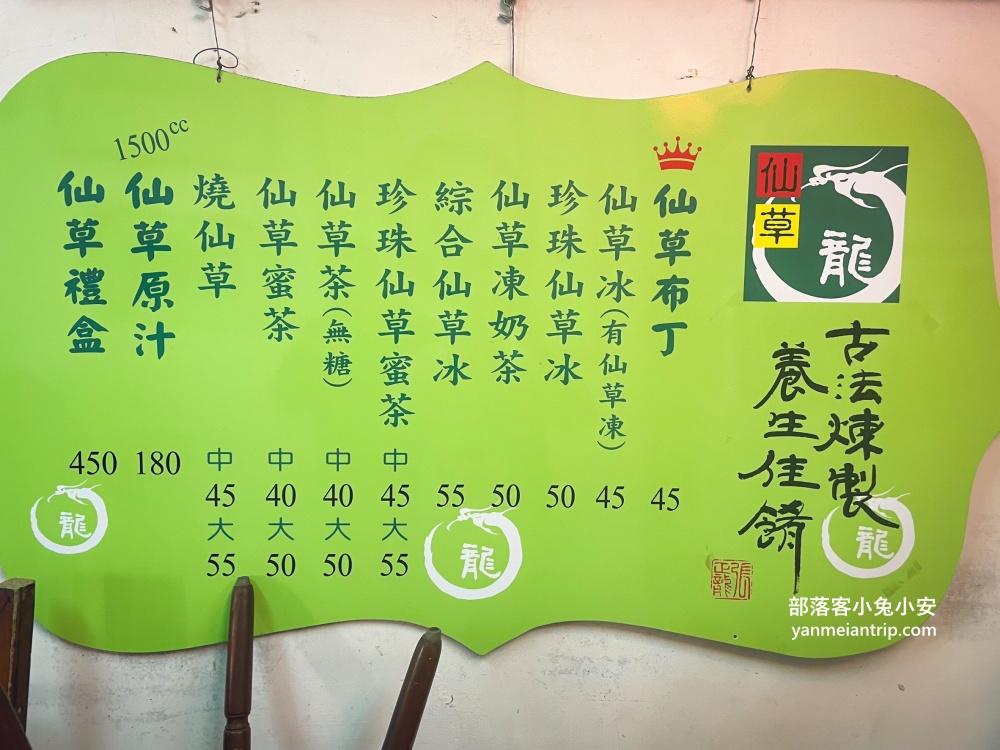 仙草
龍
古法煉製
養生佳餚
仙草布丁 45
仙草冰(有仙草凍) 45
珍珠仙草冰 50
仙草凍奶茶 50
綜合仙草冰 55
珍珠仙草蜜茶 中 45 大 55
仙草茶(無糖) 中 40 大 50
仙草蜜茶 中 40 大 50
燒仙草 中 45 大 55
1500cc
仙草原汁 180
仙草禮盒 450
龍
龍
龍
部落客小兔小安
yanmeiantrip.com